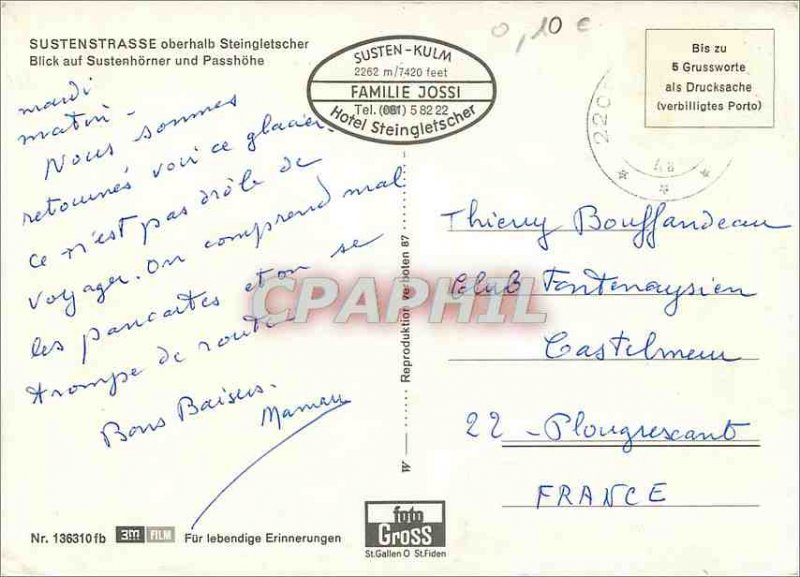 SUSTENSTRASSE oberhalb Steingletscher
Blick auf Sustenhörner und Passhöhe
SUSTEN-KULM
2262 m/7420 feet
FAMILIE JOSSI
Tel. (081) 5 82 22
Hotel Steingletscher
0,10 €
Bis zu
5 Grussworte
als Drucksache
(verbilligtes Porto)
220
mardi
matin.
Nous sommes
retournés voir ce glacier.
Ce n'est pas drôle de
voyager. On comprend mal
les pancartes et on se
trompe de route
Bons Baisers.
Maman
CPAPHIL
W Reproduktion verboten 87
Thierry Bouffandeau
Club Fontenaysien
Castelmeur
22 - Plougrescant
FRANCE
Nr. 136310fb 3M FILM Für lebendige Erinnerungen
foto
Gross
St.Gallen O St.Fiden